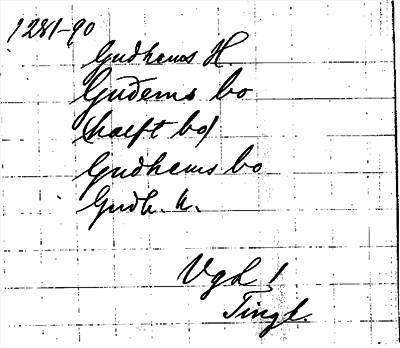 1281-90
Gudhems H.
Gudems bo
(haeft bo)
Gudhems bo
Gudh. h.
VgL!
Tingl.